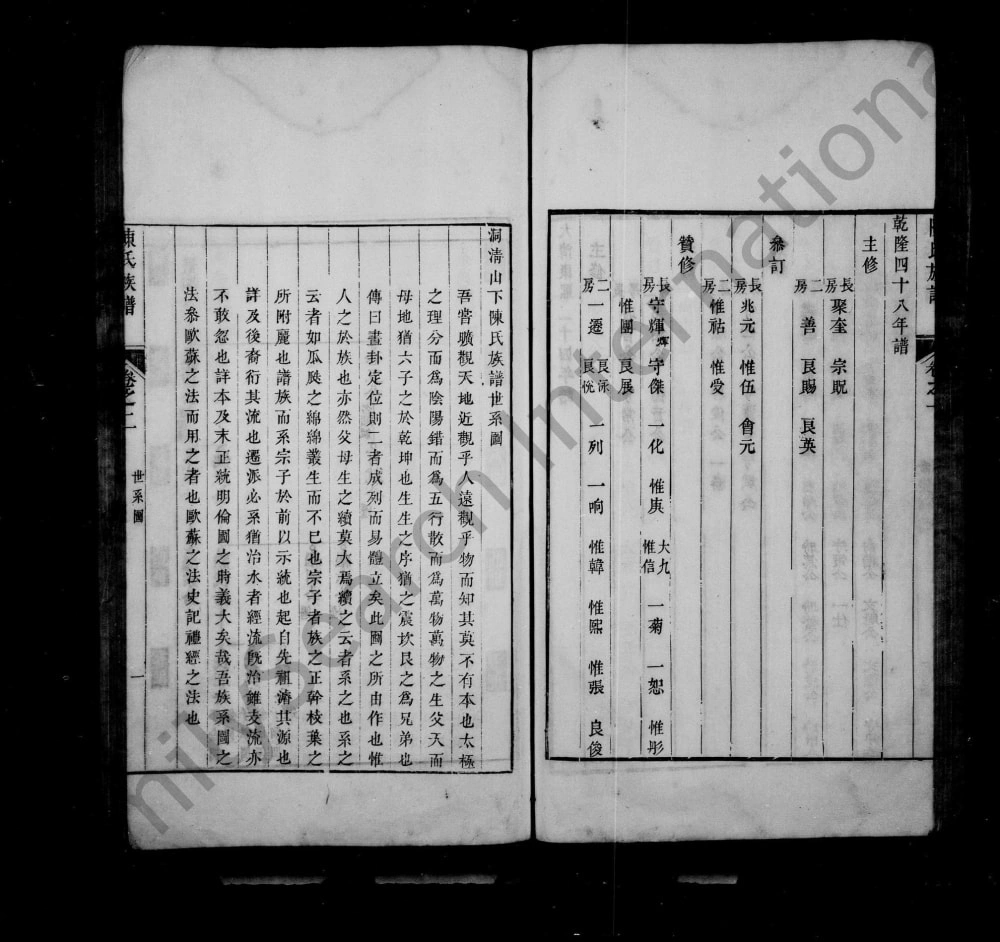 乾隆四十八年譜
主修
長房 聚奎 宗貺
二房 善 良賜 良英
叅訂
長房 兆元 惟伍 會元
二房 惟祜 惟愛
贊修
長房 守輝 守傑 一化 惟庚 大九 惟信 一菊 一恕 惟彤
惟團 良展
二房 一遷 良泳 良侊 一列 一响 惟韓 惟熙 惟張 良俊
洞清山下陳氏族譜世系圖
吾嘗曠觀天地近觀乎人遠觀乎物而知其莫不有本也太極
之理分而為陰陽錯而為五行散而為萬物萬物之生父天而
母地猶六子之於乾坤也生生之序猶之震坎艮之為兄弟也
傳曰畫卦定位則二者成列而易體立矣此圖之所由作也惟
人之於族也亦然父母生之續莫大焉續之云者系之也系之
云者如瓜瓞之綿綿叢生而不已也宗子者族之正幹枝葉之
所附麗也譜族而系宗子於前以示統也起自先祖濬其源也
詳及後裔衍其流也遷派必系猶治水者經流既治雖支流亦
不敢忽也詳本及末正統明倫圖之時義大矣哉吾族系圖之
法叅歐蘇之法而用之者也歐蘇之法史記禮經之法也
陳氏族譜
卷之二
世系圖
一
FamilySearch International